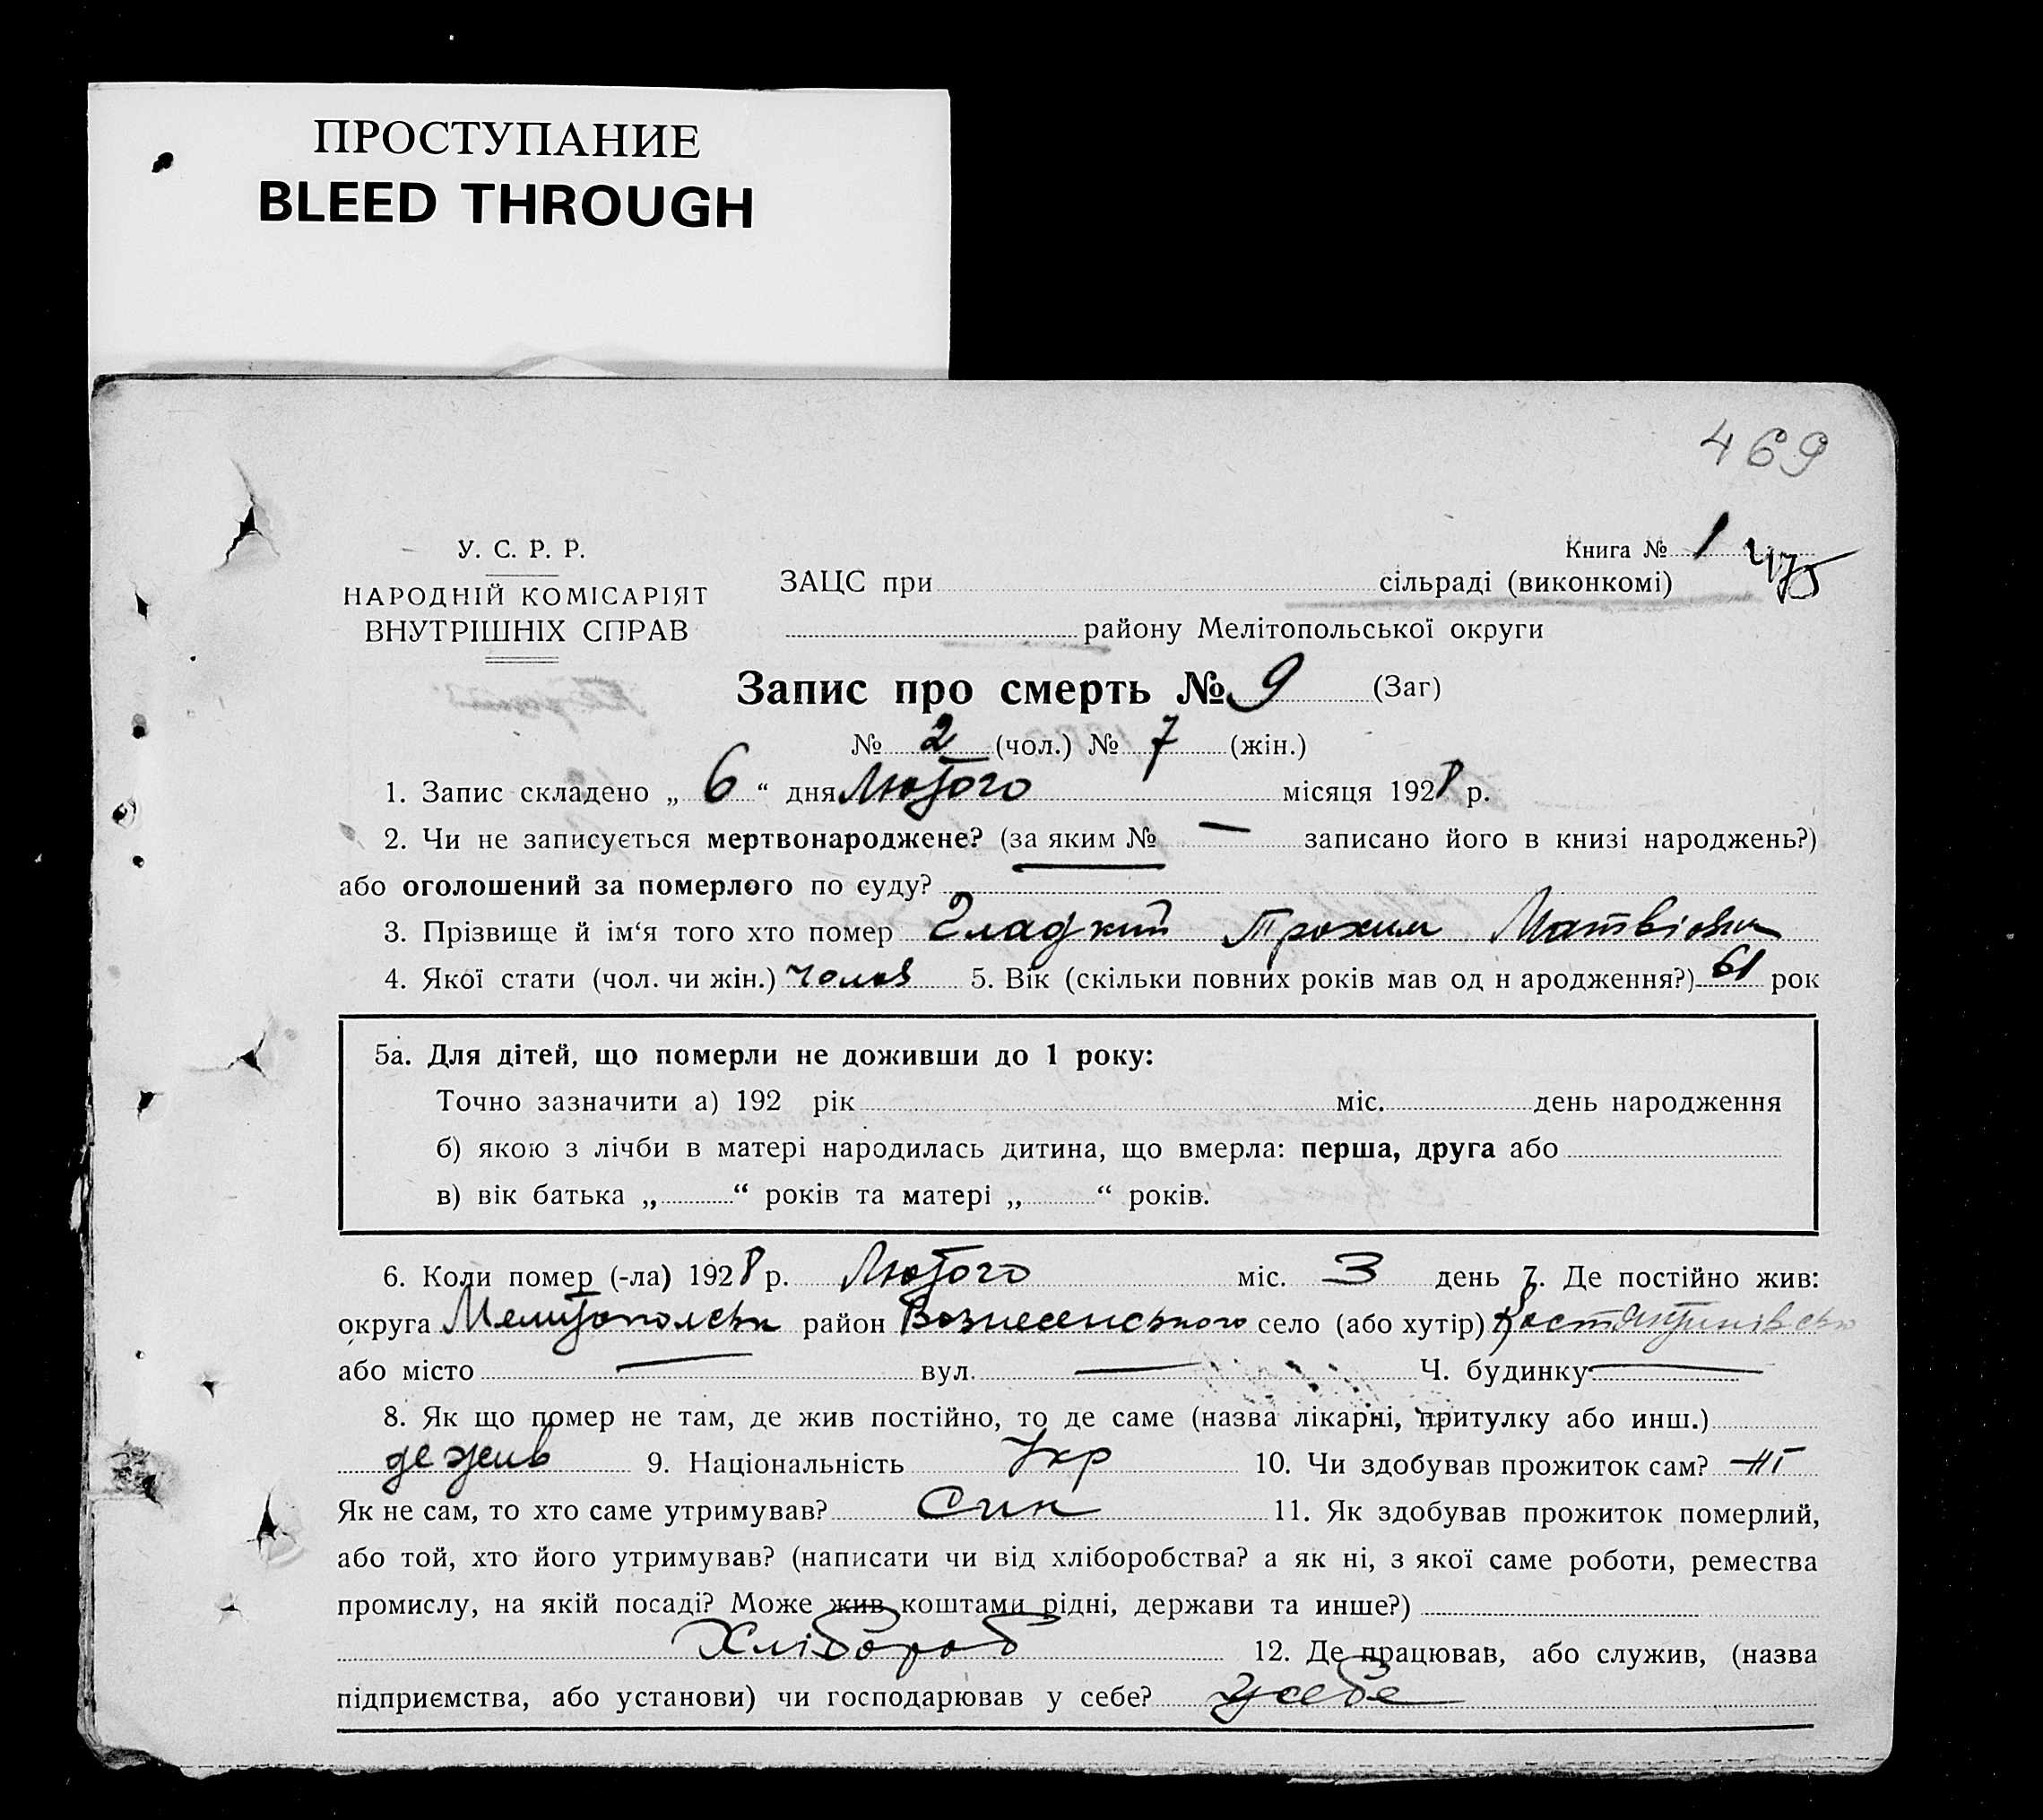 ПРОСТУПАНИЕ
BLEED THROUGH
469
У. С. Р. Р.
НАРОДНІЙ КОМІСАРІЯТ
ВНУТРІШНІХ СПРАВ
Книга № 1 475
ЗАЦС при сільраді (виконкомі)
району Мелітопольської округи
Запис про смерть № 9 (Заг)
№ 2 (чол.) № 7 (жін.)
1. Запис складено „ 6 “ дня Лютого місяця 1928 р.
2. Чи не записується мертвонароджене? (за яким № — записано його в книзі народжень?)
або оголошений за померлого по суду?
3. Прізвище й ім‘я того хто помер Гладкий Трохим Матвієвич
4. Якої стати (чол. чи жін.) чолов 5. Вік (скільки повних років мав од н ародження?) 61 рок
5а. Для дітей, що померли не доживши до 1 року:
Точно зазначити а) 192 рік міс. день народження
б) якою з лічби в матері народилась дитина, що вмерла: перша, друга або
в) вік батька „ “ років та матері „ “ років.
6. Коли помер (-ла) 1928 р. Лютого міс. 3 день 7. Де постійно жив:
округа Мелитопольськ район Вознесенського село (або хутір) Костянтинівсько
або місто — вул. — Ч. будинку —
8. Як що помер не там, де жив постійно, то де саме (назва лікарні, притулку або инш.)
де жив 9. Національність Укр 10. Чи здобував прожиток сам? ні
Як не сам, то хто саме утримував? син 11. Як здобував прожиток померлий,
або той, хто його утримував? (написати чи від хліборобства? а як ні, з якої саме роботи, ремества
промислу, на якій посаді? Може жив коштами рідні, держави та инше?)
Хлібороб 12. Де працював, або служив, (назва
підприємства, або установи) чи господарював у себе? у себе